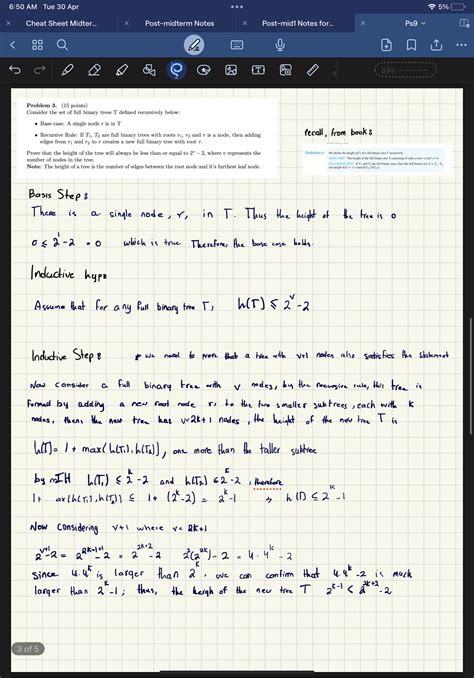 6:50 AM Tue 30 Apr
5%
Cheat Sheet Midter...
Post-midterm Notes
Post-mid1 Notes for...
Ps9
Problem 3. (15 points)
Consider the set of full binary trees T defined recursively below:
• Base case: A single node r is in T
• Recursive Rule: If T₁, T₂ are full binary trees with roots r₁, r₂ and r is a node, then adding
edges from r₁ and r₂ to r creates a new full binary tree with root r.
Prove that the height of the tree will always be less than or equal to 2ᵛ − 2, where v represents the
number of nodes in the tree.
Note: The height of a tree is the number of edges between the root node and it's furthest leaf node.
recall, from book:
Basis Step:
There is a single node, r, in T. Thus the height of the tree is 0
0 ≤ 2¹-2 = 0 which is true. Therefore, the base case holds.
Inductive hyp:
Assume that for any full binary tree T, h(T) ≤ 2ᵛ-2
Inductive Step: * we need to prove that a tree with v+1 nodes also satisfies the statement
Now consider a full binary tree with v nodes, by the recursive rule, this tree is
formed by adding a new root node r, to the two smaller subtrees, each with k
nodes, then the new tree has v=2k+1 nodes, the height of the new tree T is
h(T) = 1 + max(h(T₁), h(T₂)), one more than the taller subtree
by IH h(T₁) ≤ 2ᵏ-2 and h(T₂) ≤ 2ᵏ-2, therefore
1+ ax(h(T₁), h(T₂)) ≤ 1+ (2ᵏ-2) = 2ᵏ-1 → h(T) ≤ 2ᵏ-1
Now Considering v+1 where v= 2k+1
2ᵛ⁺¹-2 = 2²ᵏ⁺¹⁺¹-2 = 2²ᵏ⁺²-2 2²(2²ᵏ)-2 = 4·4ᵏ-2
Since 4·4ᵏ is larger than 2ᵏ, we can confirm that 4·4ᵏ-2 is much
larger than 2ᵏ-1; thus, the heigh of the new tree T 2ᵏ-1 ≤ 2²ᵏ⁺²-2
3 of 5